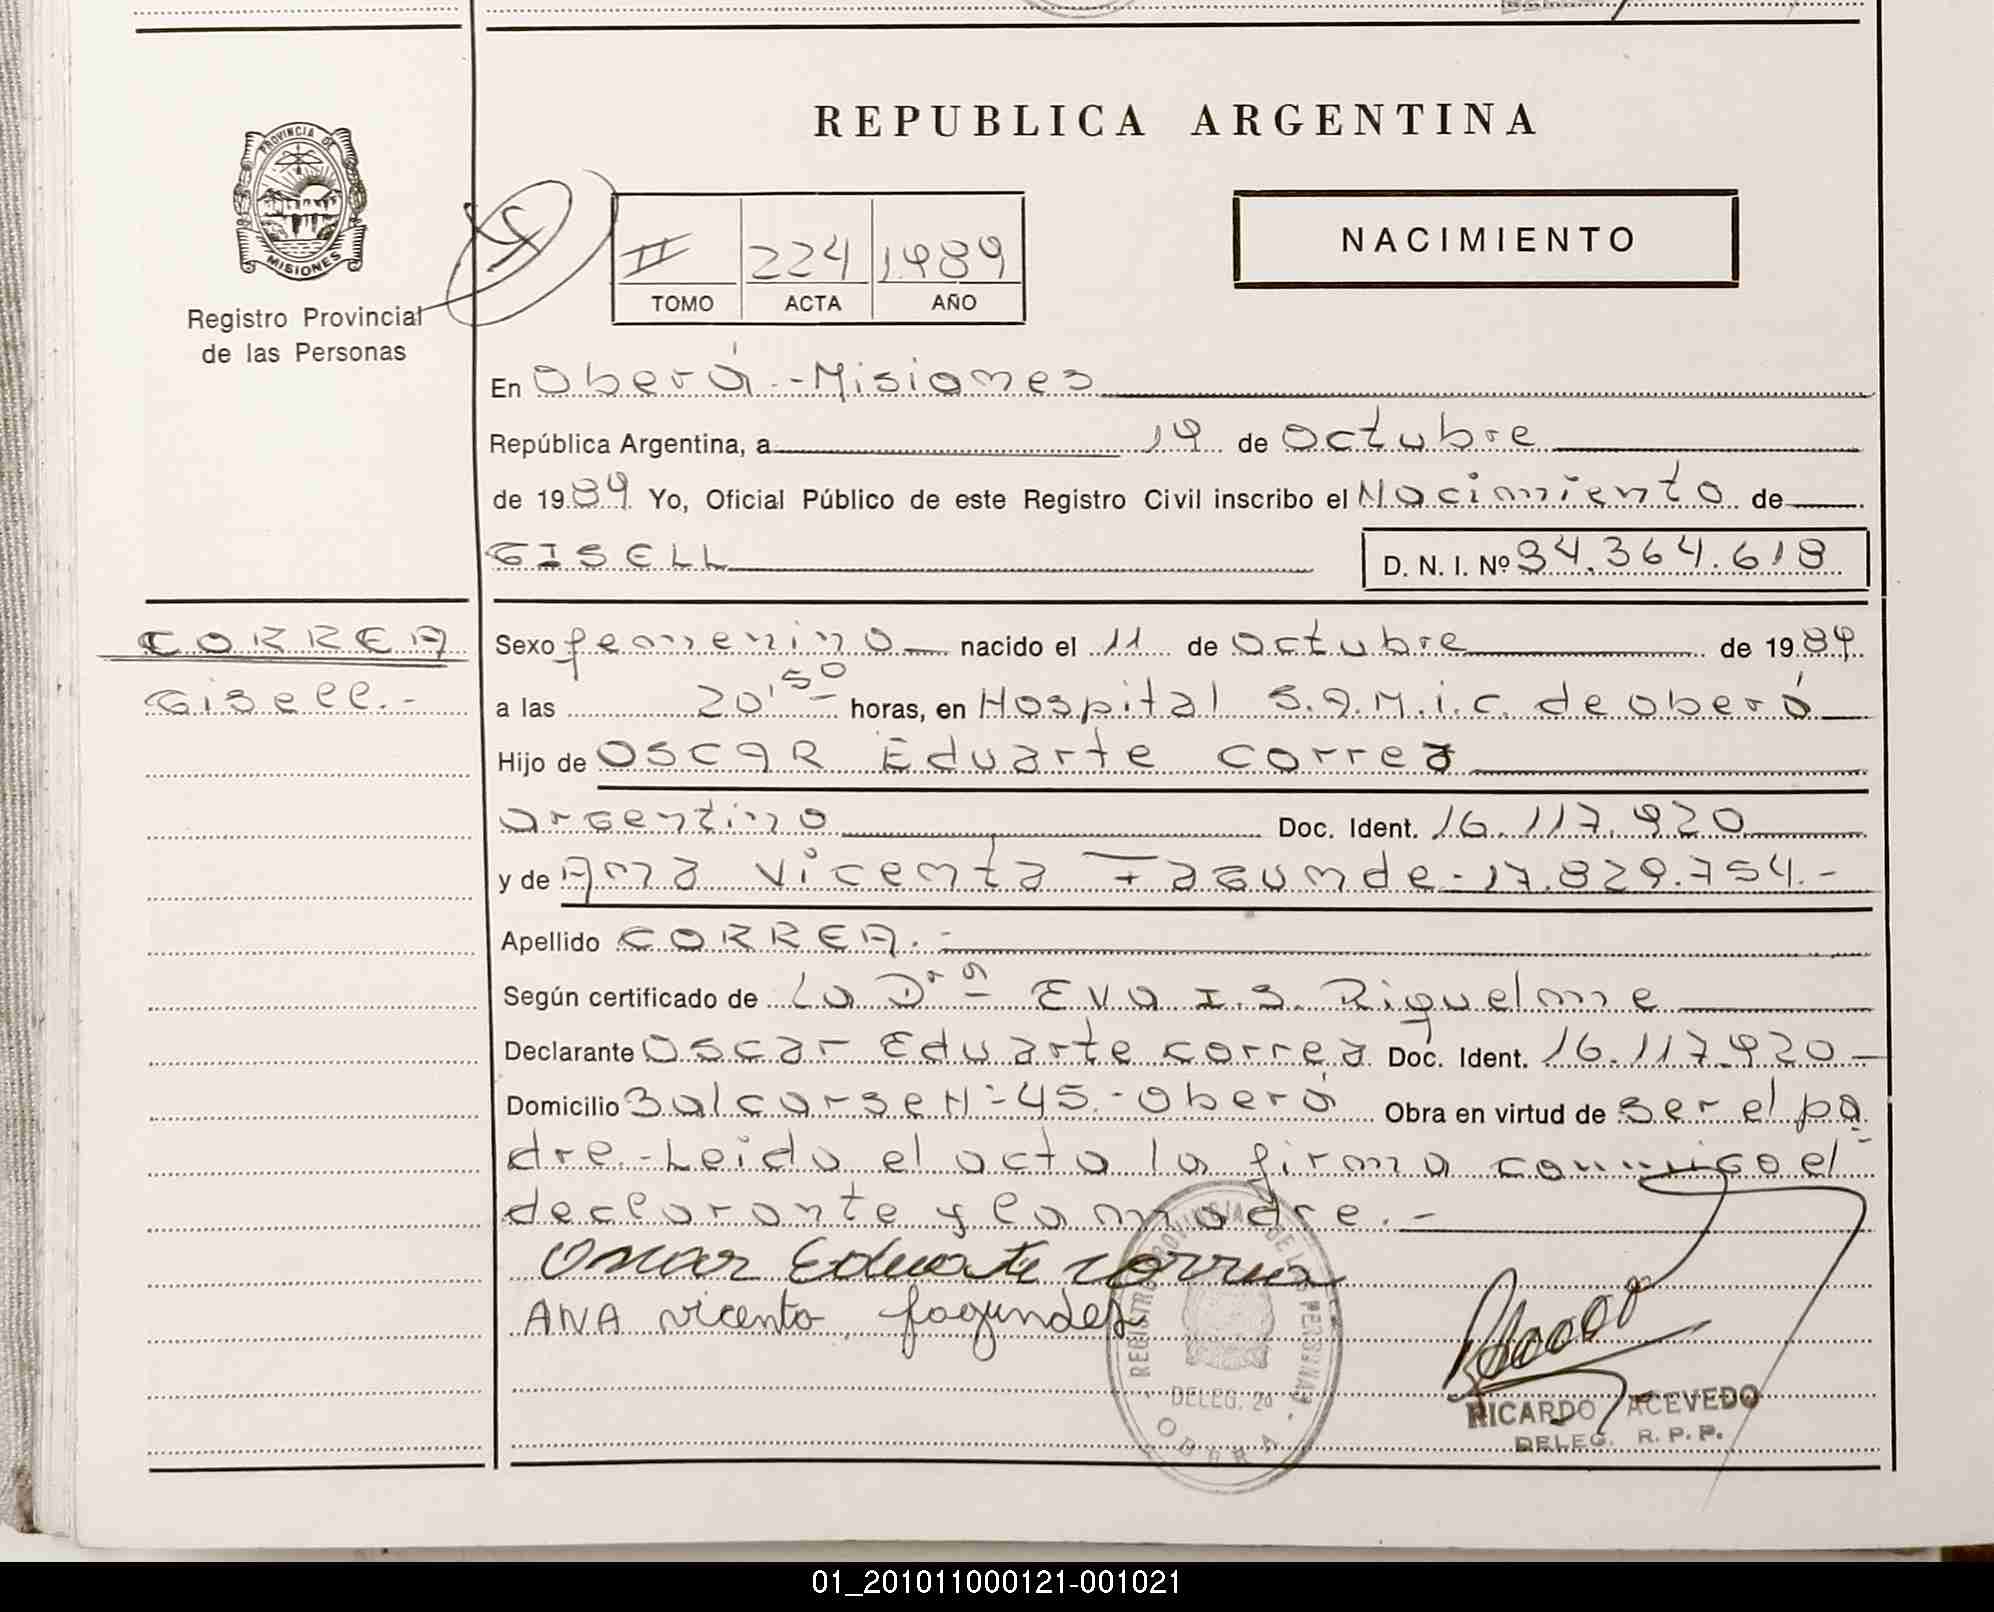 REPUBLICA ARGENTINA
PROVINCIA DE
MISIONES
Registro Provincial
de las Personas
II 224 1989
TOMO ACTA AÑO
NACIMIENTO
En Oberá.-Misiones
República Argentina, a 19 de Octubre
de 1989 Yo, Oficial Público de este Registro Civil inscribo el Nacimiento de
GISELL D. N. I. Nº 34.364.618
CORREA
Gisell.-
Sexo femenino nacido el 11 de octubre de 1989
a las 20,50 horas, en Hospital S.A.M.i.c. de oberá
Hijo de OSCAR Eduarte correa
argentino Doc. Ident. 16.117.920
y de Ana Vicenta Fagunde-17.829.754.-
Apellido CORREA.-
Según certificado de La Dra Eva I.S. Riquelme
Declarante Oscar Eduarte correa Doc. Ident. 16.117.920-
Domicilio Balcarse Nº 45.-Oberá Obra en virtud de ser el pa
dre.-Leida el acta la firma conmigo el
declarante y la madre.-
Oscar Eduarte Correa
ANA vicenta fagundez
REGISTRO PROVINCIAL DE LAS PERSONAS
DELEG. 2ª
OBERA
RICARDO ACEVEDO
DELEG. R.P.P.
01_201011000121-001021